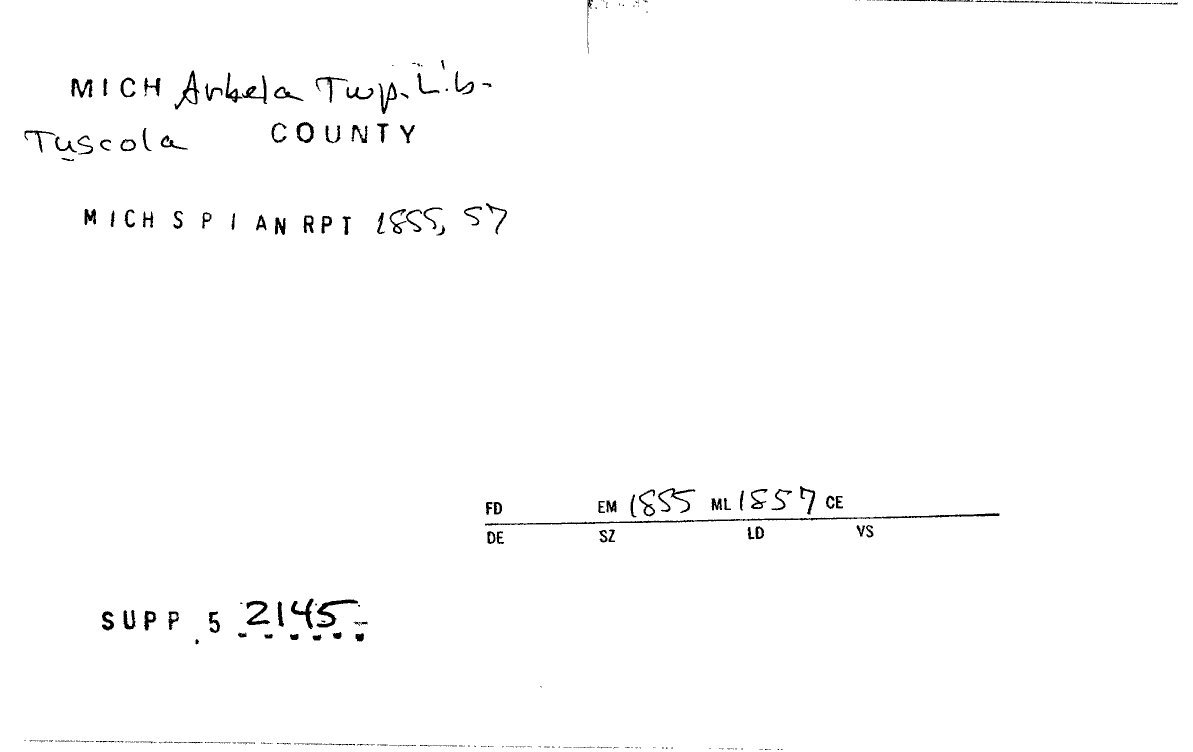 MICH Arbela Twp. Lib.
Tuscola COUNTY
MICH S P I AN RPT 1855, 57
FD EM 1855 ML 1857 CE
DE SZ LD VS
SUPP. 5 2145